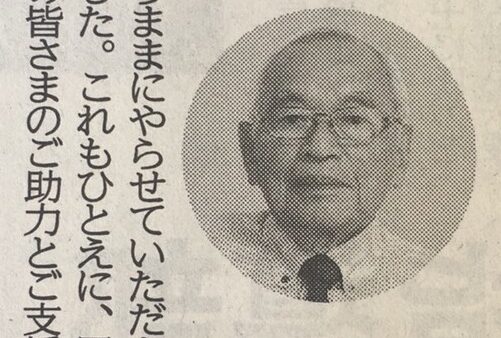 ままにやらせていただ
た。これもひとえに、
皆さまのご助力とご支